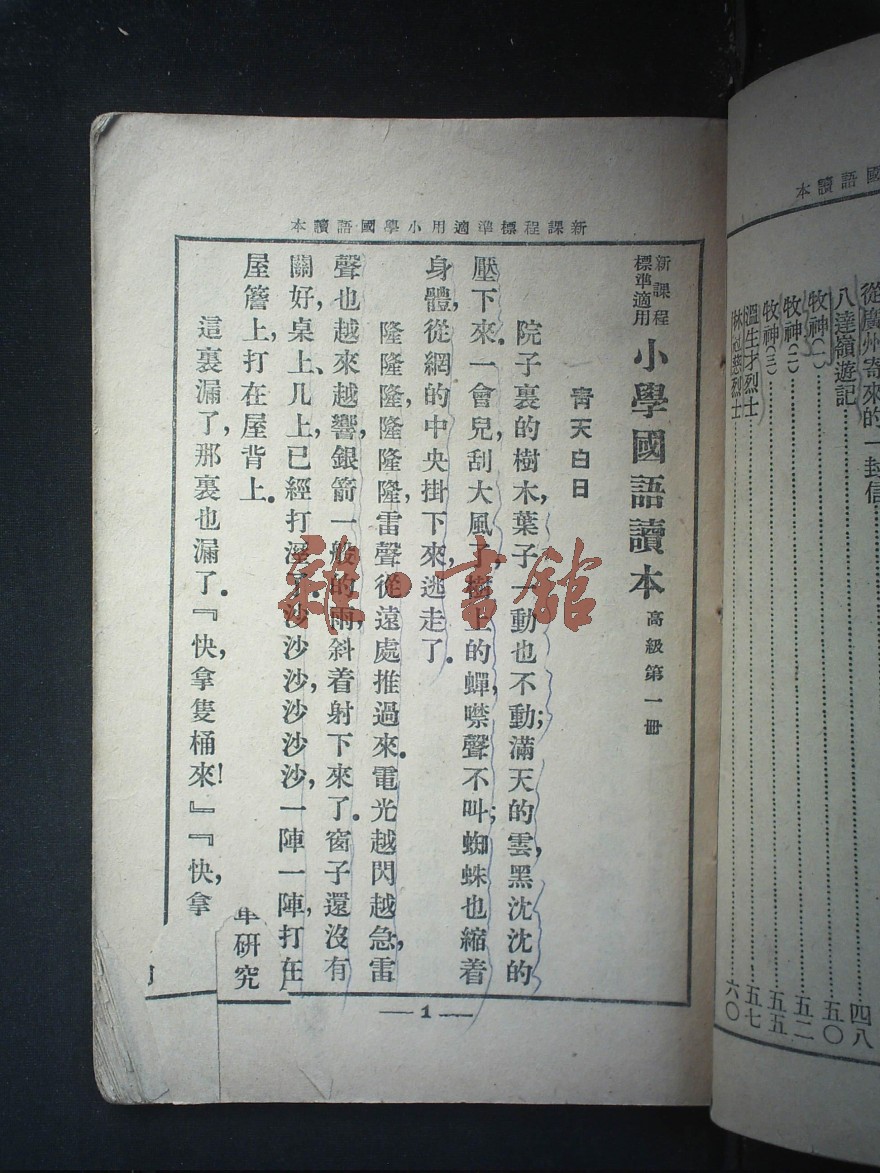 本讀語國
從廣州寄來的一封信…四八
八達嶺遊記…五〇
牧神(一)…五二
牧神(二)…五五
牧神(三)…五七
溫生才烈士…六〇
烈士
本讀語國學小用適準標程課新
新課程標準適用 小學國語讀本 高級第一冊
青天白日
院子裏的樹木,葉子一動也不動;滿天的雲,黑沈沈的
壓下來。一會兒刮大風了,樹上的蟬,噤聲不叫;蜘蛛也縮着
身體,從網的中央掛下來,逃走了。
隆隆隆,隆隆隆,雷聲從遠處推過來。電光越閃越急,雷
聲也越來越響,銀箭一般的雨,斜着射下來了。窗子還沒有
關好,桌上、几上,已經打溼了。沙沙沙,沙沙沙,一陣一陣,打在
屋簷上,打在屋背上。
這裏漏了,那裏也漏了。『快,拿隻桶來!』『快,拿
研究
— 1 —
雜·書館